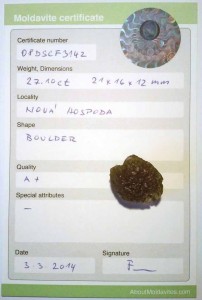 Moldavite certificate
Certificate number
OPDSCF3142
Weight, Dimensions
27.10ct 21 x 16 x 12 mm
Locality
NOVÁ HOSPODA
Shape
BOULDER
Quality
A+
Special attributes
–
Date Signature
3.3.2014
AboutMoldavites.com